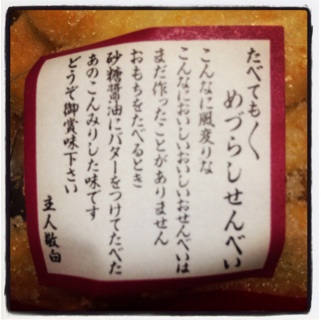 たべても〱
めづらしせんべい
こんなに風変りな
こんなにおいしいおいしいおせんべいは
まだ作ったことがありません
おもちをたべるとき
砂糖醤油にバターをつけてたべた
あのこんみりした味です
どうぞ御賞味下さい
主人敬白